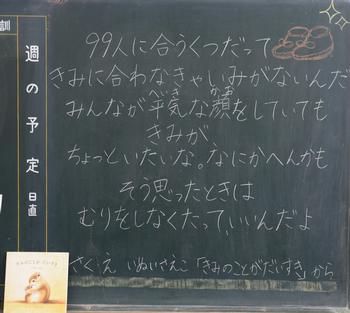 訓
週の予定
日直
99人に合うくつだって
きみに合わなきゃいみがないんだ
みんなが平気な顔をしていても
へいき かお
きみが
ちょっといたいな。なにかへんかも
そう思ったときは
むりをしなくたって、いいんだよ
さく・え いぬいさえこ 「きみのことがだいすき」から
きみのことが だいすき